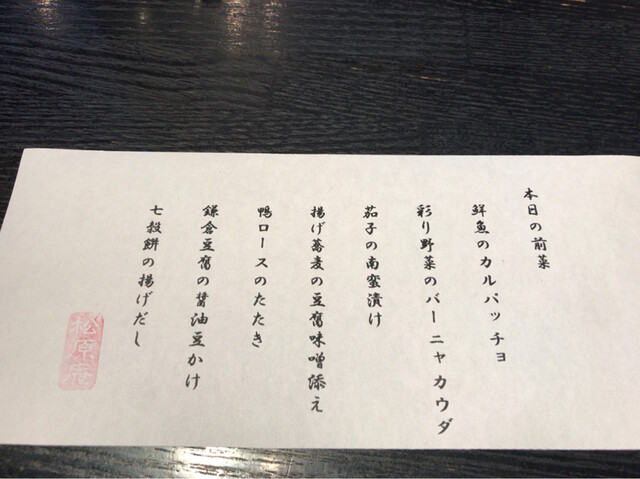 本日の前菜
鮮魚のカルパッチョ
彩り野菜のバーニャカウダ
茄子の南蛮漬け
揚げ蕎麦の豆腐味噌添え
鴨ロースのたたき
鎌倉豆腐の醤油豆かけ
七穀餅の揚げだし
松原庵